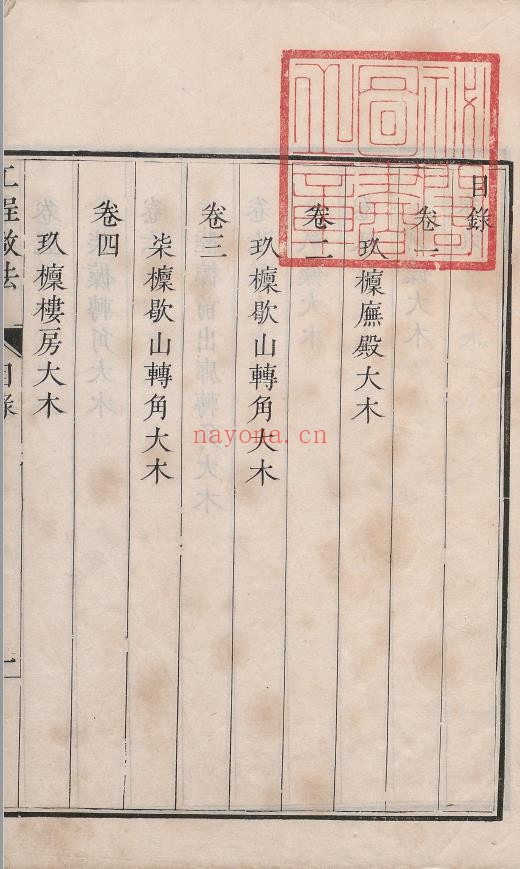 目錄
卷一
玖檁廡殿大木
卷二
玖檁歇山轉角大木
卷三
柒檁歇山轉角大木
卷四
玖檁樓房大木
工程做法
目錄
一
nayona.cn